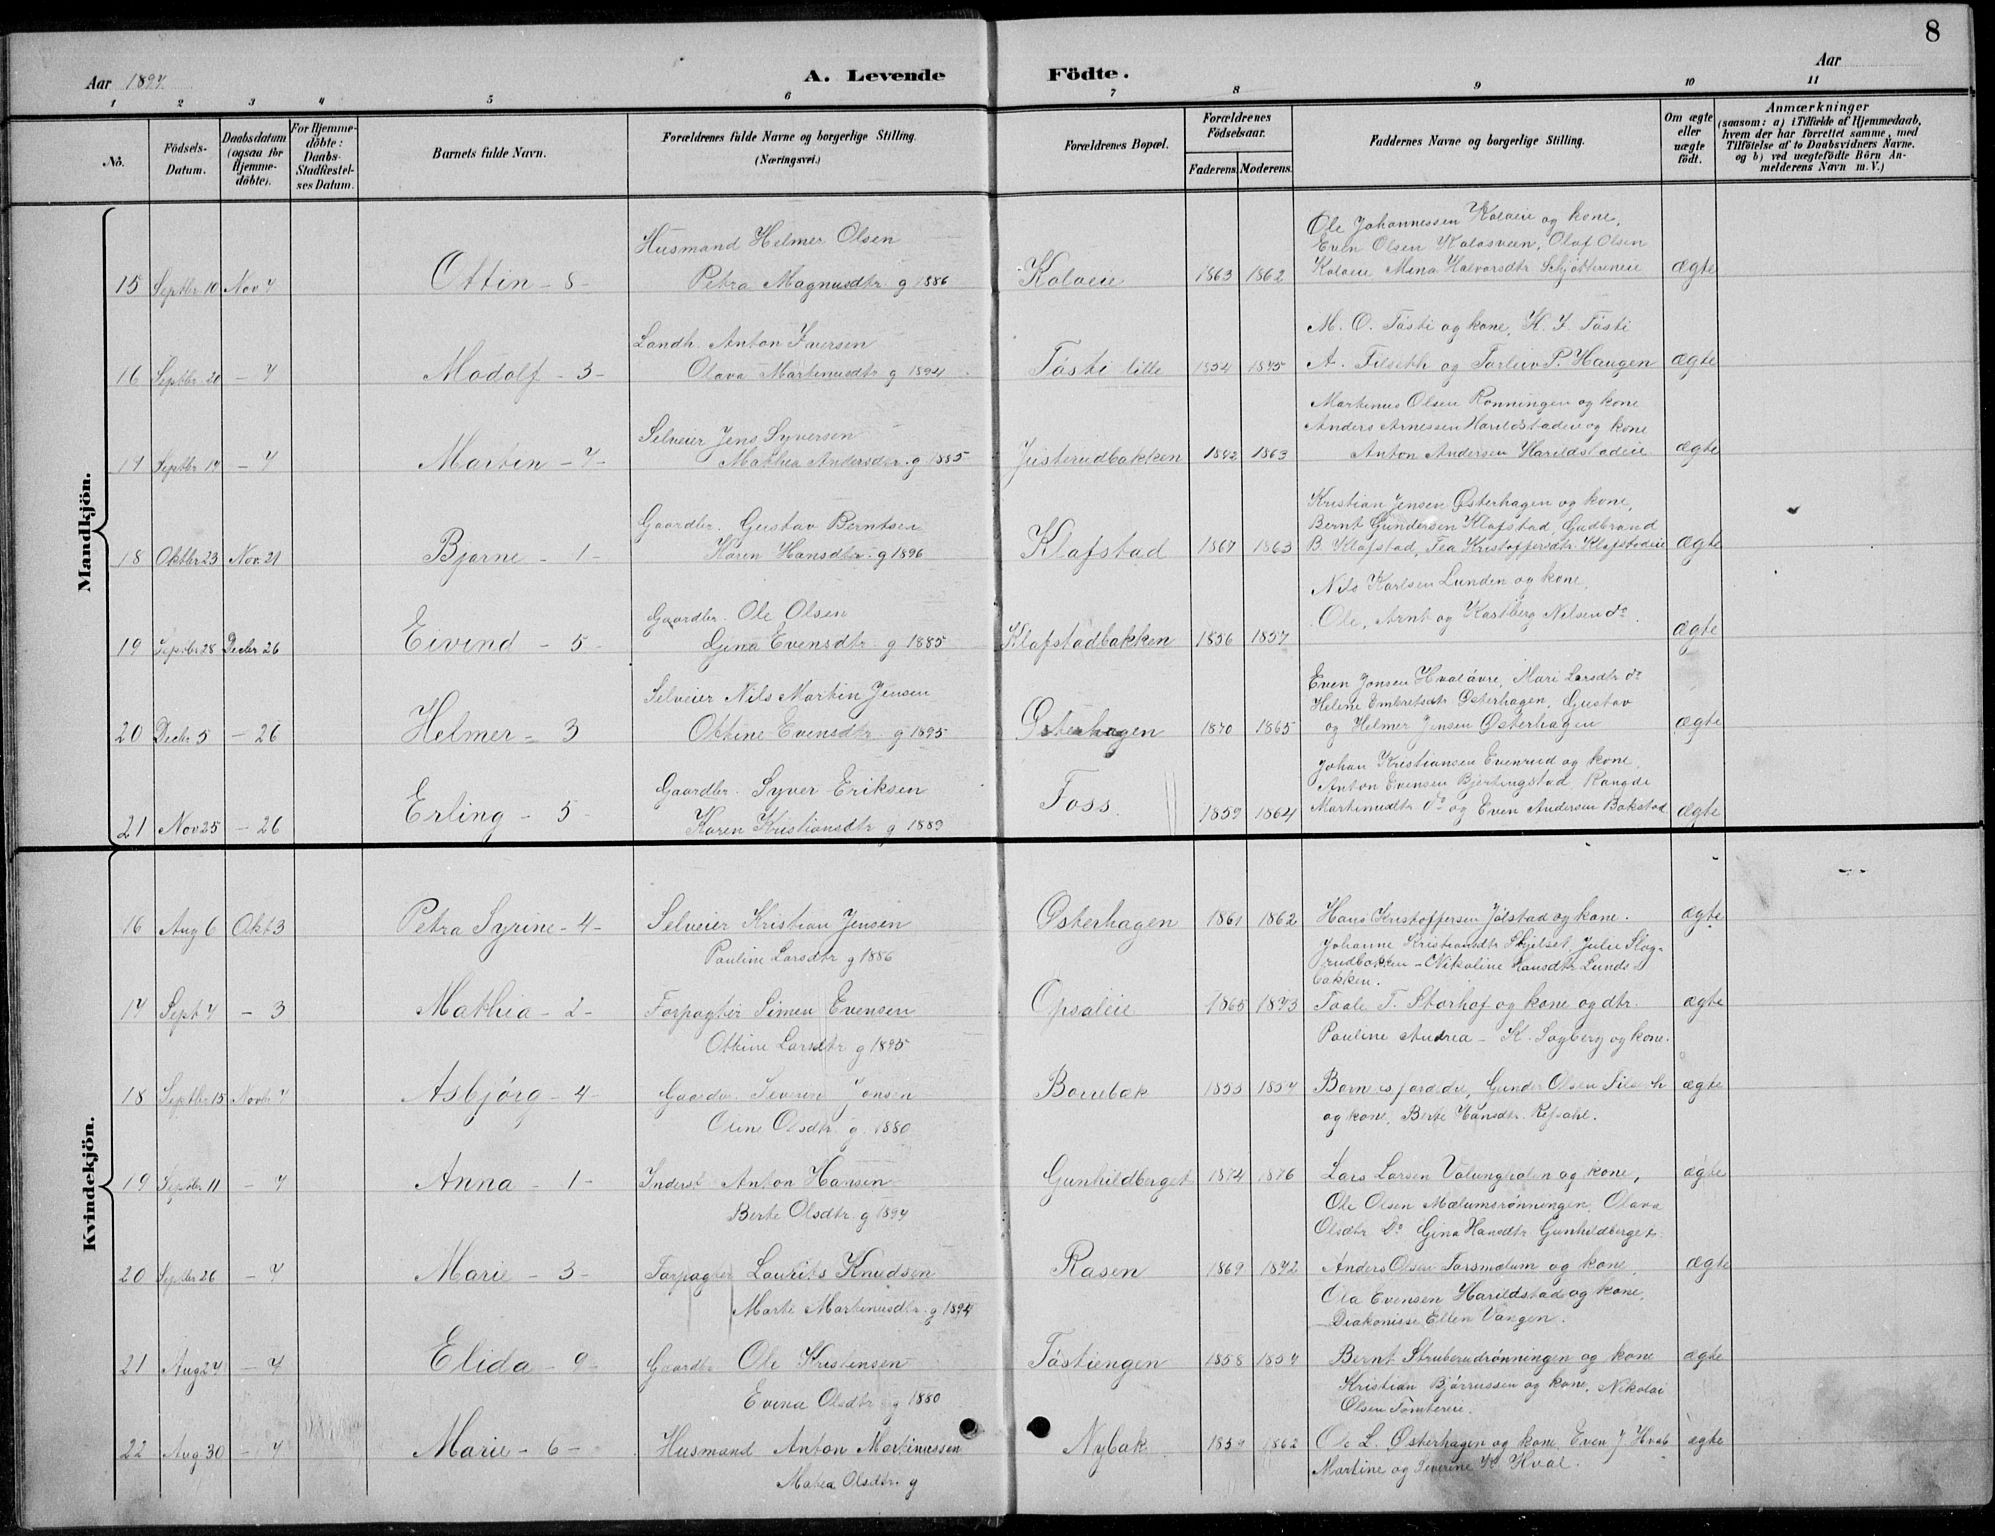 8
Aar 1897.
A. Levende Födte.
Aar
1 2 3 4 5 6 7 8 9 10 11
No.
Födsels-Datum.
Daabsdatum (ogsaa for Hjemme-döbte).
For Hjemme-döbte: Daabs-Stadfæstel-ses Datum.
Barnets fulde Navn.
Forældrenes fulde Navne og borgerlige Stilling. (Næringsvei.)
Forældrenes Bopæl.
Forældrenes Födselsaar.
Faderens. Moderens.
Faddernes Navne og borgerlige Stilling.
Om ægte eller uægte födt.
Anmærkninger (saasom: a) i Tilfælde af Hjemmedaab, hvem der har forrettet samme, med Tilföielse af to Daabsvidners Navne. og b) ved uægtefödte Börn An-melderens Navn m. V.)
Mandkjön.
15 Septbr 10 Nov 7 Ottin - 8 - Husmand Helmer Olsen
Petra Magnusdtr. g 1886 Kolaeie 1863 1862
Ole Johannessen Kolaeie og kone,
Even Olsen Kolosveen, Olaf Olsen
Kolaeie Mina Halvorsdtr ægte
16 Septbr 20 - 7 Modolf - 3 - Landh. Anton Iversen
Olava Martinusdtr g 1894 Tósti lille 1854
M. O. Tósti og kone, K. I. Tósti
A. Filseth og Torleiv P. Haugen ægte
17 Septbr 14 - 7 Martin - 7 - Selveier Jens Syversen
Mathea Andersdtr. g 1885 Justerudbakken 1863
Martinus Olsen Rönningen og kone
Anders Arnessen Harildstadeie og kone
Anton Andersen Harildstadeie ægte
18 Oktbr 23 Nov. 21 Bjarne - 1 - Gaardbr. Gustav Berntsen
Karen Hansdtr. g 1896 Klafstad 1867 1863
Kristian Jensen Østerhagen og kone,
Bernt Gundersen Klafstad Gudbrand
B. Klafstad, Tea Kristoffersdtr. Klafstadeie ægte
19 Septbr 28 Decbr 26 Eivind - 5 - Gaardbr. Ole Olsen
Gina Evensdtr. g 1885 Klafstadbakken 1856 1857
Nils Karlsen Lunden og kone,
Ole, Arnt og Kastberg Nilsen do. ægte
20 Decbr 5 - 26 Helmer - 3 Selveier Nils Martin Jensen
Ottine Evensdtr. g 1895 Østerhagen 1870 1865
Even Jonsen Hvaløvre, Mari Larsdtr do
Heline Embretsdtr Østerhagen, Gustav
og Helmer Jensen Østerhagen ægte
21 Nov 25 - 26 Erling - 5 - Gaardbr. Syver Eriksen
Karen Kristiansdtr g 1889 Foss. 1859 1864
Johan Kristiansen Evenrud og kone,
Anton Evensen Bjertingstad Rangdi
Martinusdtr do og Even Andersen Bakstad ægte
Kvindekjön.
16 Aug 6 Okt 3 Petra Syrine - 4 - Selveier Kristian Jensen
Pauline Larsdtr g 1886 Østerhagen 1861 1862
Hans Kristoffersen Jólstad og kone.
Johanne Kristiansdtr Skjelset, Julie Slag-
rudbakken - Nikoline Hansdtr Lunds-
bakken. ægte
17 Sept 7 - 3 Mathea - 2 - Forpagter Simen Evensen
Ottine Larsdtr g 1895 Opsaleie 1865 1873
Taale T. Storhof og kone og dtr.
Pauline Andrea - K. Sagberg og kone. ægte
18 Septbr 15 Novbr 7 Asbjörg - 4 - Gaardbr. Severin Jonsen
Oline Olsdtr. g. 1880 Borrebæk 1855 1857
Gunder Olsen
og kone, Berte Hansdtr. ægte
19 Septbr 11 - 7 Anna - 1 - Inderst Anton Hansen
Berte Olsdtr. g 1897 Gunhildberget 1874 1876
Lars Larsen og kone,
Ole Olsen Mælumsrønningen, Olava
Olsdtr Do Gina Hansdtr Gunhildberget. ægte
20 Septbr 26 - 7 Marie - 3 - Forpagter Laurits Knudsen
Marte Martinusdtr. g 1894 Rasen 1869 1872
Anders Olsen Farsmælum og kone
Ola Evensen Harildstad og kone,
Diakonisse Ellen Vangen. ægte
21 Aug 24 - 7 Elida - 9 - Gaardbr Ole Kristensen
Evena Olsdtr g 1880 Tóstiengen 1858 1857
Bernt Struberudrönningen og kone
Kristian Bjørnssen og kone, Nikolai
Olsen ægte
22 Aug 30 - 7 Marie - 6 - Husmand Anton Martinussen
Matea Olsdtr. g Nybak 1859 1862
Ole L. Østerhagen og kone Even J Hval
Martine og Severine K. Kval. ægte